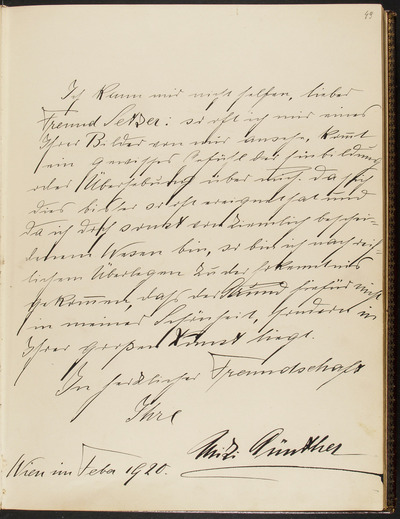 49
Ich kann mir nicht helfen, lieber
Freund Setzer: so oft ich mir eines
Ihrer Bilder von mir ansehe, kommt
ein gewisses Gefühl der Einbildung
oder Überhebung über mich. Da sich
dies bisher so oft ereignet hat und
da ich doch sonst von ziemlich beschei-
denem Wesen bin, so bin ich nach reif-
lichem Überlegen zu der Erkenntnis
gekommen, dass der Grund hiefür nicht
in meiner Schönheit, sondern in
Ihrer großen Kunst liegt.
In herzlicher Freundschaft
Ihre
Mizzi Günther
Wien im Feber 1920.